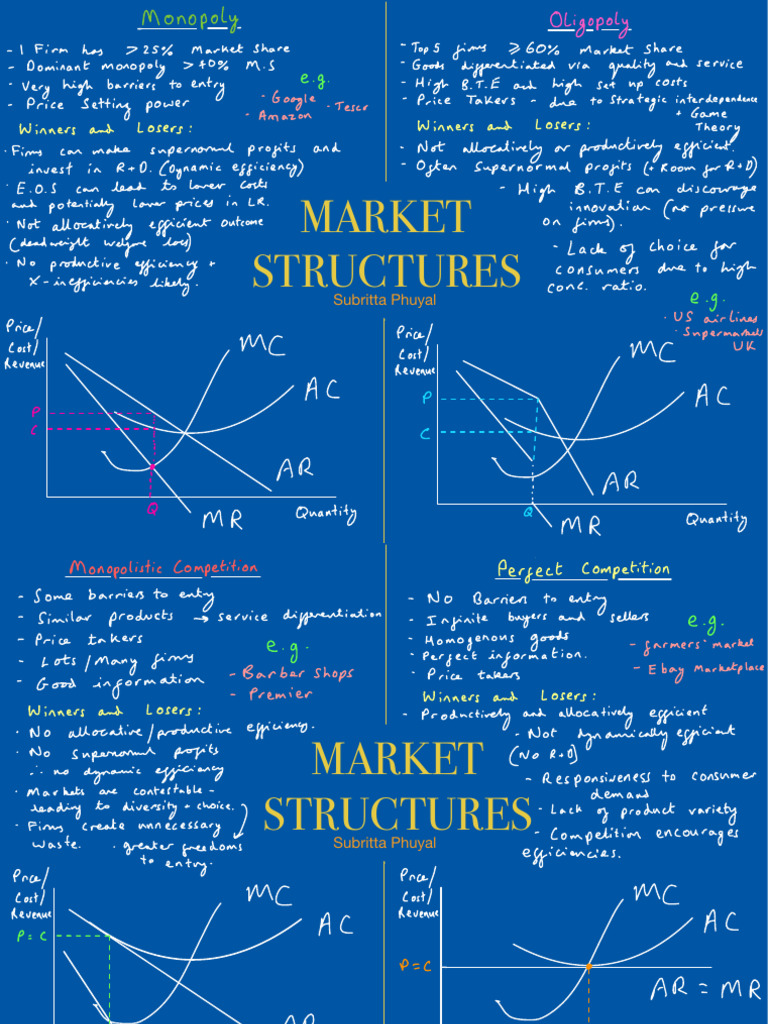 Monopoly
- 1 Firm has ≥ 25% market share
- Dominant monopoly > 40% M.S
- Very high barriers to entry
- Price Setting power
e.g.
- Google
- Amazon
· Tesco
Winners and Losers:
· Firms can make supernormal profits and
invest in R+D. (Dynamic efficiency)
· E.O.S can lead to lower costs
and potentially lower prices in LR.
· Not allocatively efficient outcome
(deadweight welfare loss)
· No productive efficiency +
X-inefficiencies likely.
Oligopoly
- Top 5 firms ≥ 60% market share
- Goods differentiated via quality and service
- High B.T.E and high set up costs
- Price Takers - due to strategic interdependence
+ Game
Theory
Winners and Losers:
- Not allocatively or productively efficient.
- Often Supernormal profits (+ Room for R+D)
- High B.T.E can discourage
innovation (no pressure
on firms).
- Lack of choice for
consumers due to high
conc. ratio.
e.g.
· US airlines
· Supermarkets
UK
MARKET
STRUCTURES
Subritta Phuyal
Price/
Cost/
Revenue
P
C
Q
MC
AC
AR
MR
Quantity
Price/
Cost/
Revenue
P
C
Q
MC
AC
AR
MR
Quantity
Monopolistic Competition
- Some barriers to entry
- Similar products → service differentiation
- Price takers
- Lots/Many firms
- Good information
e.g.
- Barber shops
- Premier
Winners and Losers:
· No allocative/productive efficiency.
· No supernormal profits
∴ no dynamic efficiency
· Markets are contestable -
leading to diversity + choice.
· Firms create unnecessary
waste.
· greater freedoms
to entry.
Perfect Competition
- No Barriers to entry
- Infinite buyers and sellers
- Homogenous goods
- Perfect information.
· Price takers
e.g.
- farmers' market
- Ebay Marketplace
Winners and Losers:
- Productively and allocatively efficient
- Not dynamically efficient
(No R+D)
- Responsiveness to consumer
demand
· Lack of product variety
- Competition encourages
efficiencies.
MARKET
STRUCTURES
Subritta Phuyal
Price/
Cost/
Revenue
P = C
MC
AC
AR
Price/
Cost/
Revenue
P = C
MC
AC
AR = MR